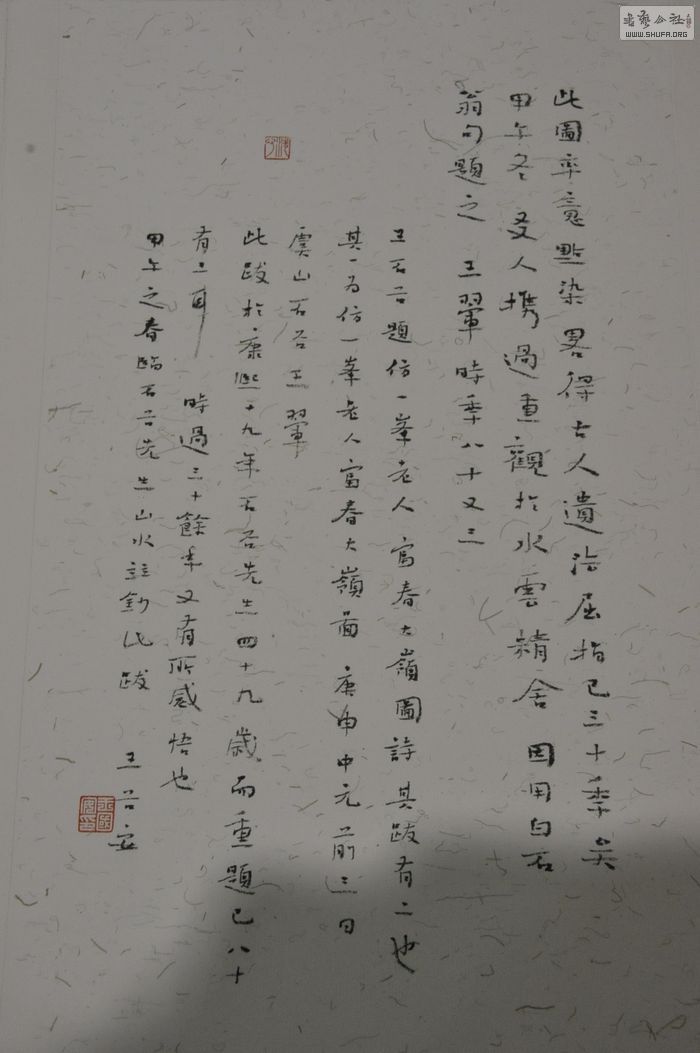 此圖率意點染畧得古人遺法屈指已三十季矣
甲午冬友人攜過重觀於水雲精舍因用白石
翁句題之 王翬時季八十又三
王石谷題仿一峯老人富春大嶺圖詩其跋有二也
其一为仿一峯老人富春大嶺圖 庚申中元前三日
虞山石谷王翬
此跋於康熙十九年石谷先生四十九歲而重題已八十
有三耳 時過三十餘年又有所感悟也
甲午之春臨石谷先生山水並鈔此跋 王
书法公社
WWW.SHUFA.ORG